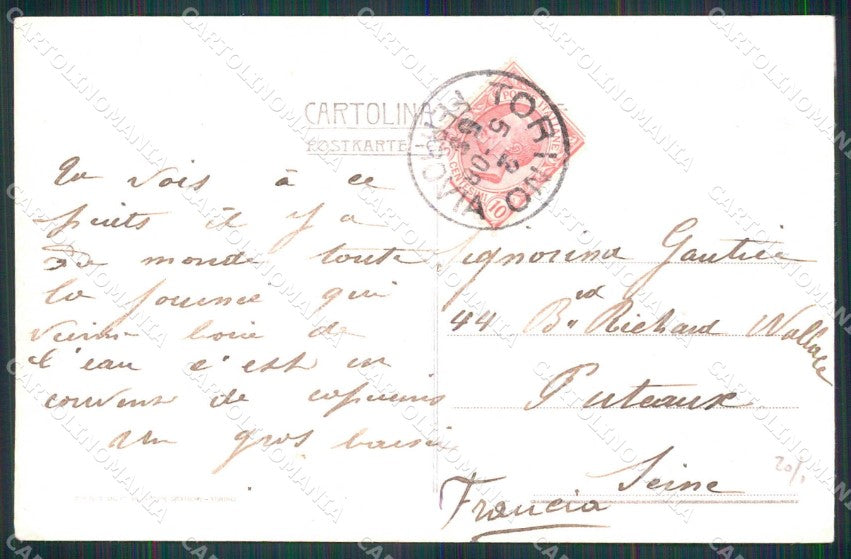 CARTOLINA
POSTKARTE
TORINO
FERROVIA
5 12 08
10
Tu vois à ce
puits il y a
de monde toute
la journee qui
vienne boire de
l'eau c'est un
couvent de capucins
un gros baiser
Signorina Gautier
44 Bd Richard Wallace
Puteaux
Seine
Francia
CARTOLINOMANIA